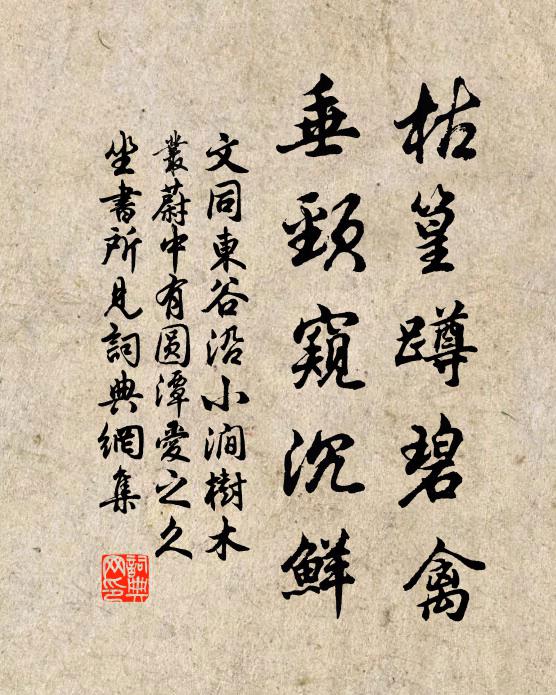 枯篁蹲碧禽
垂頸窺沉鮮
文同東谷沿小澗樹木
叢蔚中有圓潭愛之久
坐書所見詞典網集
詞典
网印